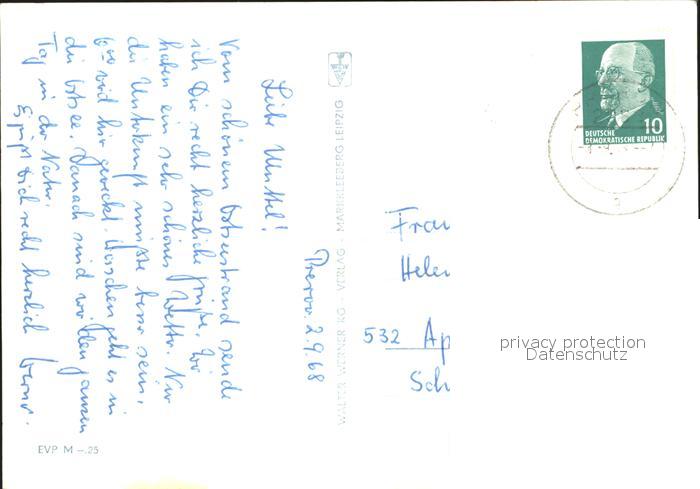 Prerow 2.9.68
Liebe Muttel!
Vom schönen Ostseestrand sende
ich Dir recht herzliche Grüße. Wir
haben ein sehr schönes Wetter. Nur
die Unterkunft müßte besser sein.
6⁰⁰ wird hier geweckt. Waschen geht es in
die Ostsee. Danach sind wir den ganzen
Tag in der Natur.
Es grüßt Dich recht herzlich Werner.
EVP M –.25
WALTER WERNER KG · VERLAG · MARKKLEEBERG LEIPZIG
DEUTSCHE
DEMOKRATISCHE REPUBLIK
10
Frau
Helen
532 Ap
Sch
privacy protection
Datenschutz